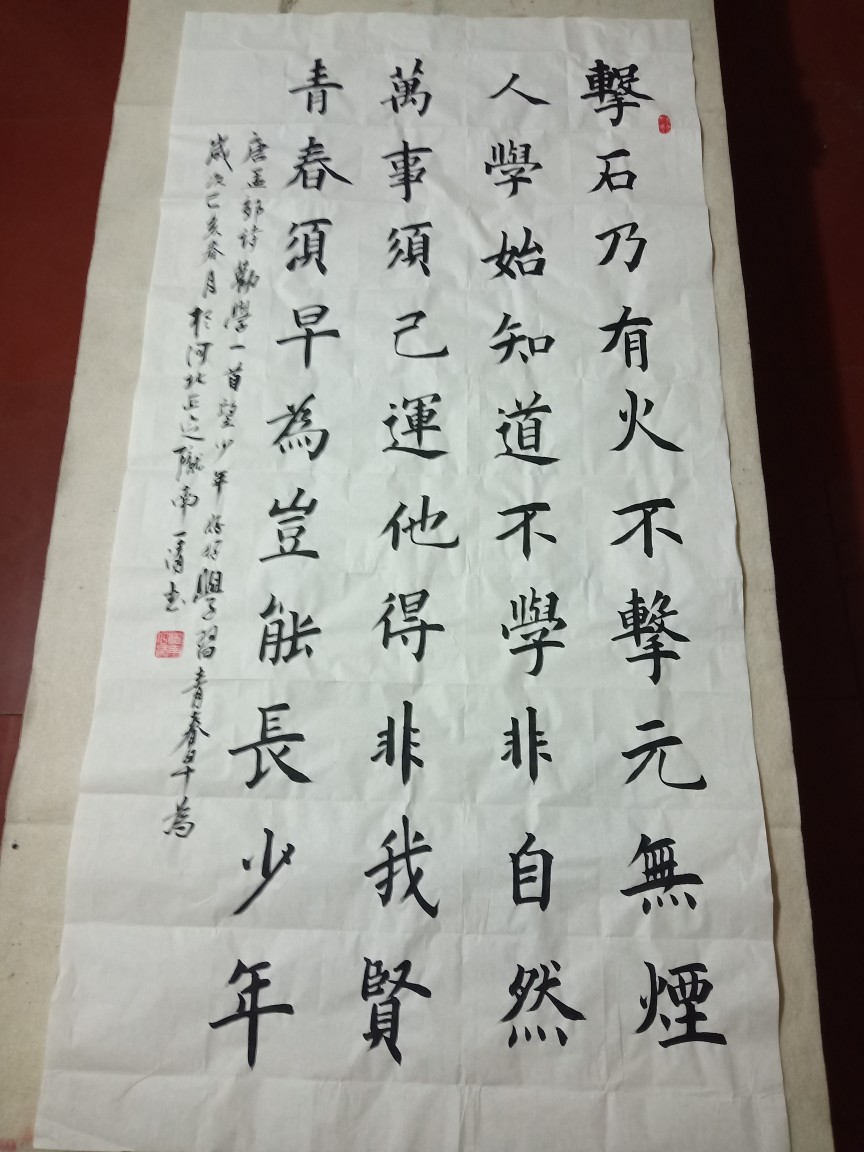 撃石乃有火不撃元無煙
人學始知道不學非自然
萬事須己運他得非我賢
青春須早為豈能長少年
唐孟郊詩勸學一首望少年好好學習青春早為
歲次己亥春月於河北正定隴南一清書